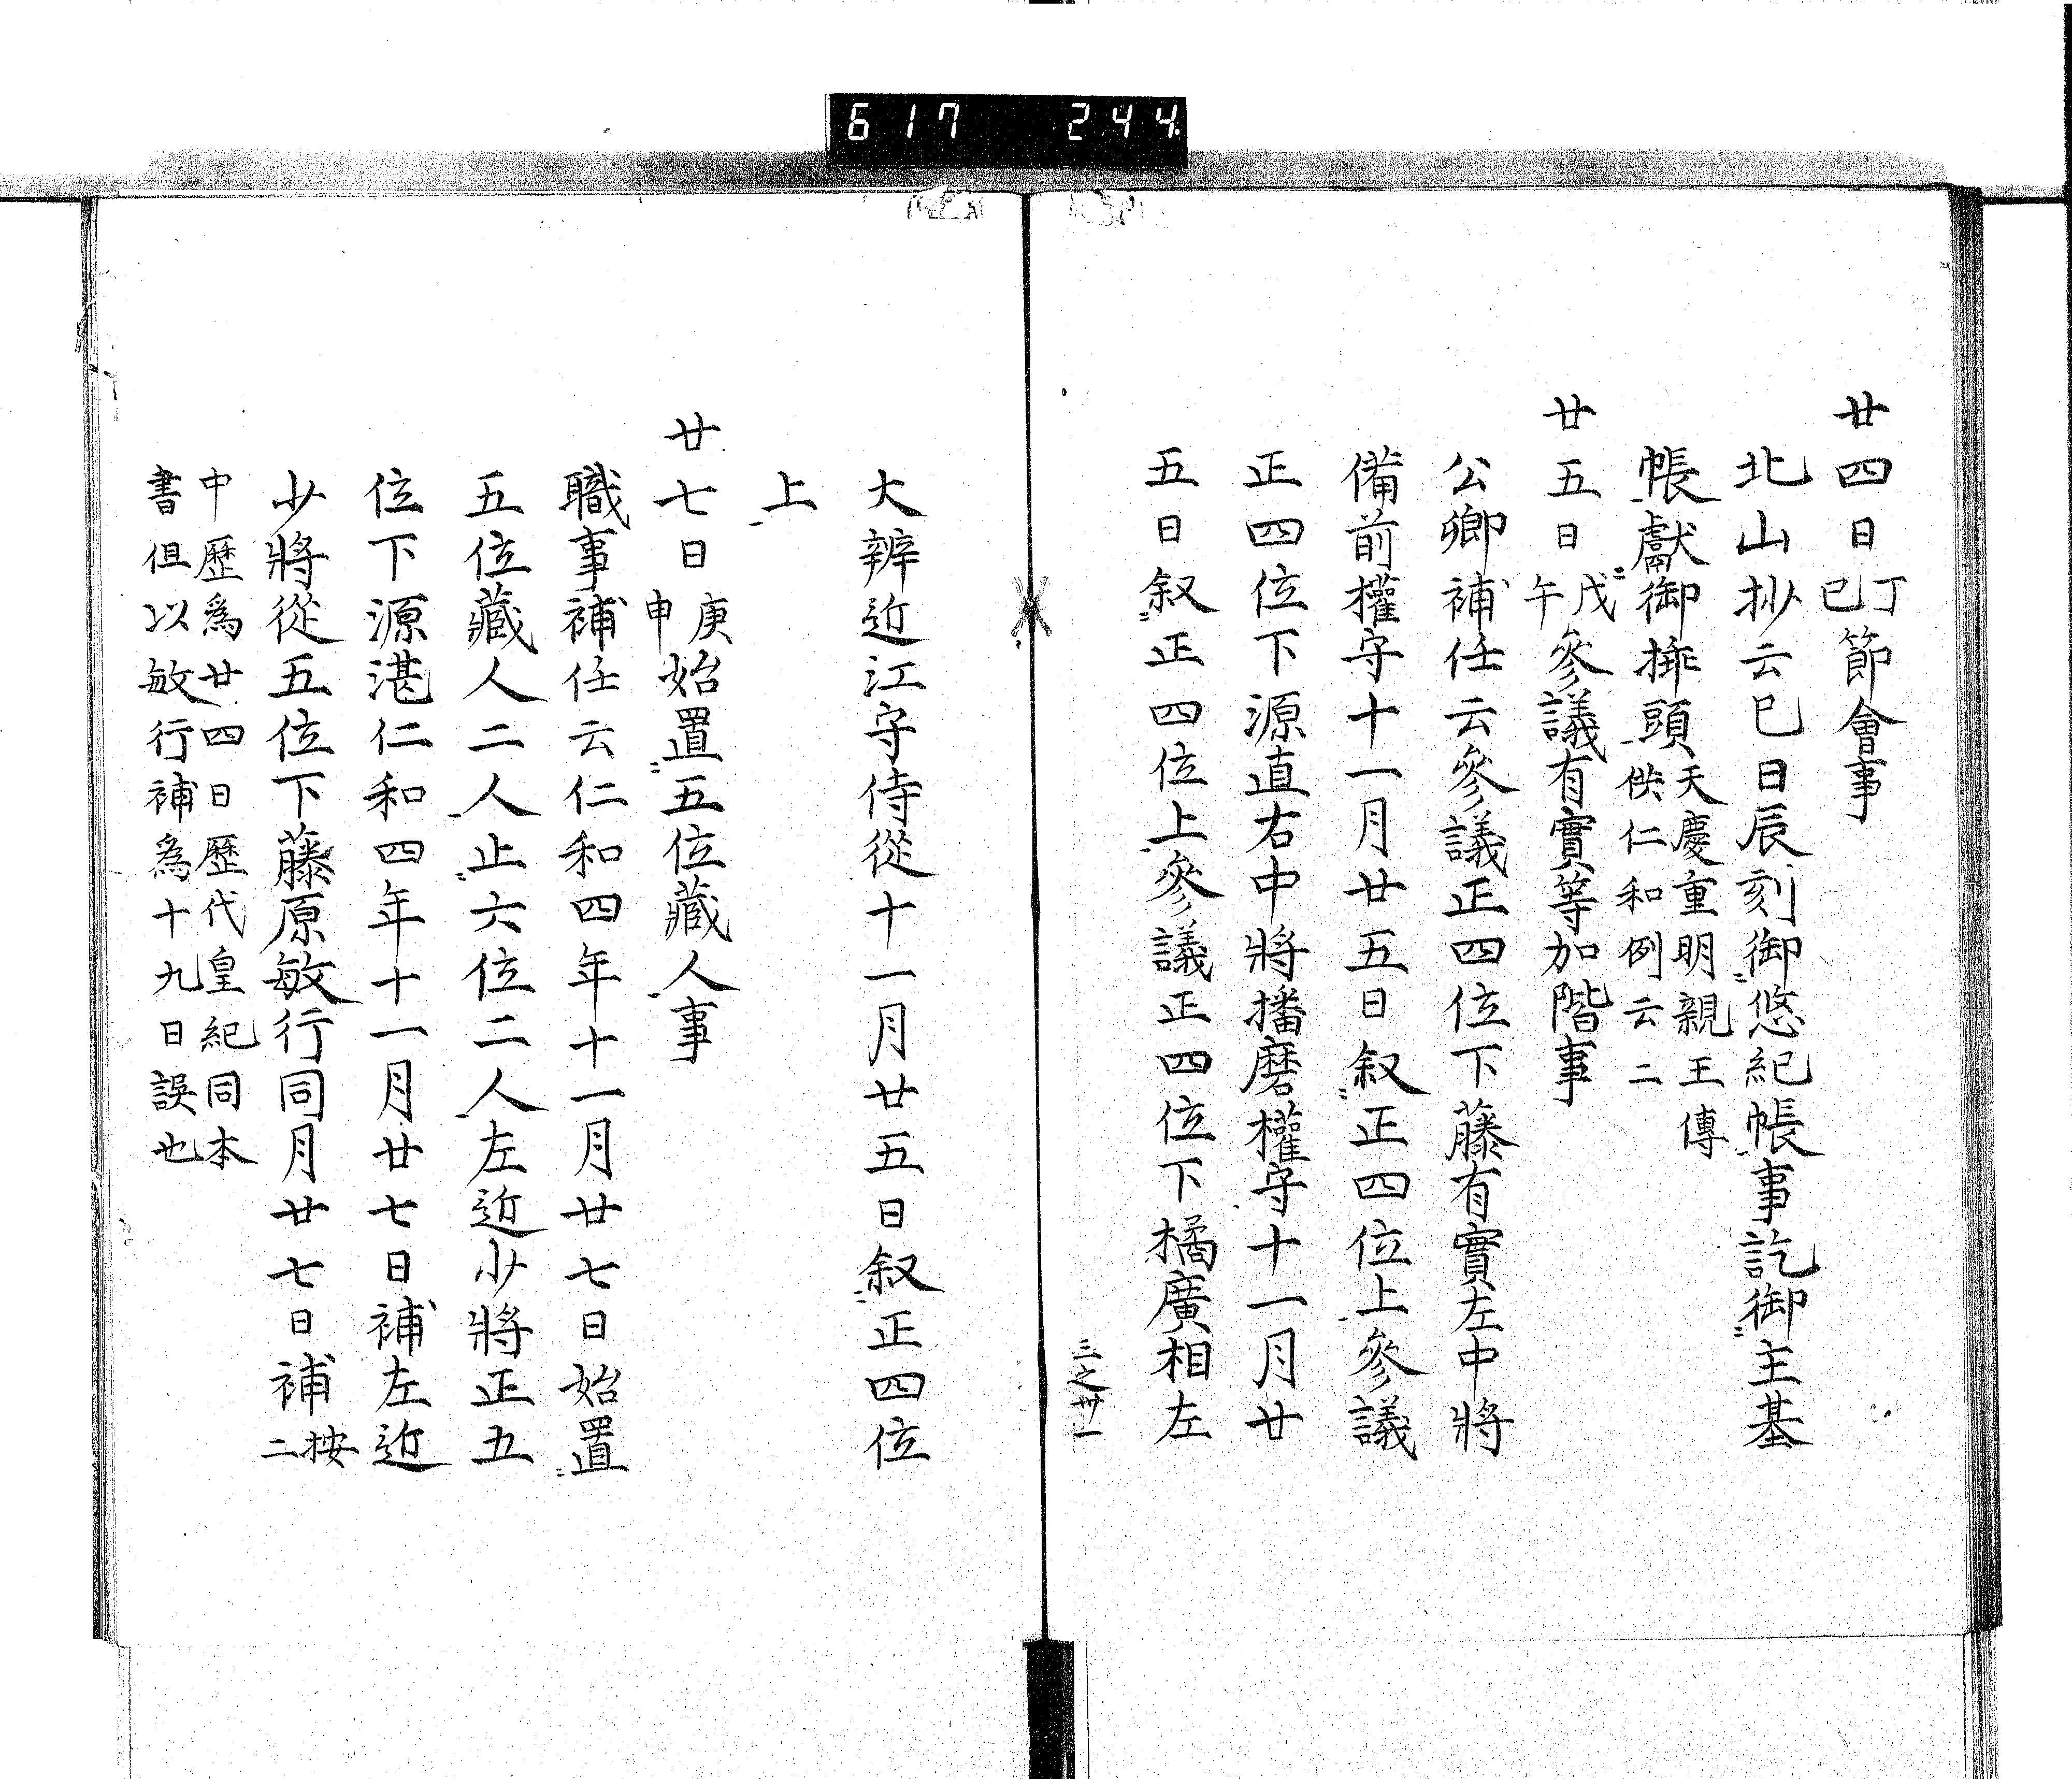 617 244
廿四日丁巳節會事
北山抄云巳日辰刻御悠紀帳事訖御主基
帳獻御挿頭天慶重明親王傳
供仁和例云二
廿五日戊午參議有實等加階事
公卿補任云參議正四位下藤有實左中將
備前權守十一月廿五日叙正四位上參議
正四位下源直右中將播磨權守十一月廿
五日叙正四位上參議正四位下橘廣相左
三之卅一
大辨近江守侍從十一月廿五日叙正四位
上
廿七日庚申始置五位藏人事
職事補任云仁和四年十一月廿七日始置
五位藏人二人止六位二人左近少將正五
位下源湛仁和四年十一月廿七日補左近
少將從五位下藤原敏行同月廿七日補按
二
中歷為廿四日歷代皇紀同本
書但以敏行補為十九日誤也